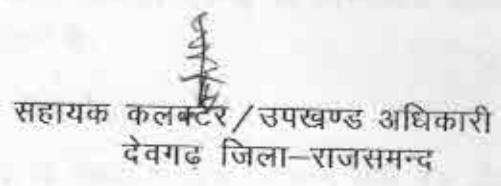 सहायक कलक्टर/उपखण्ड अधिकारी
देवगढ़ जिला–राजसमन्द